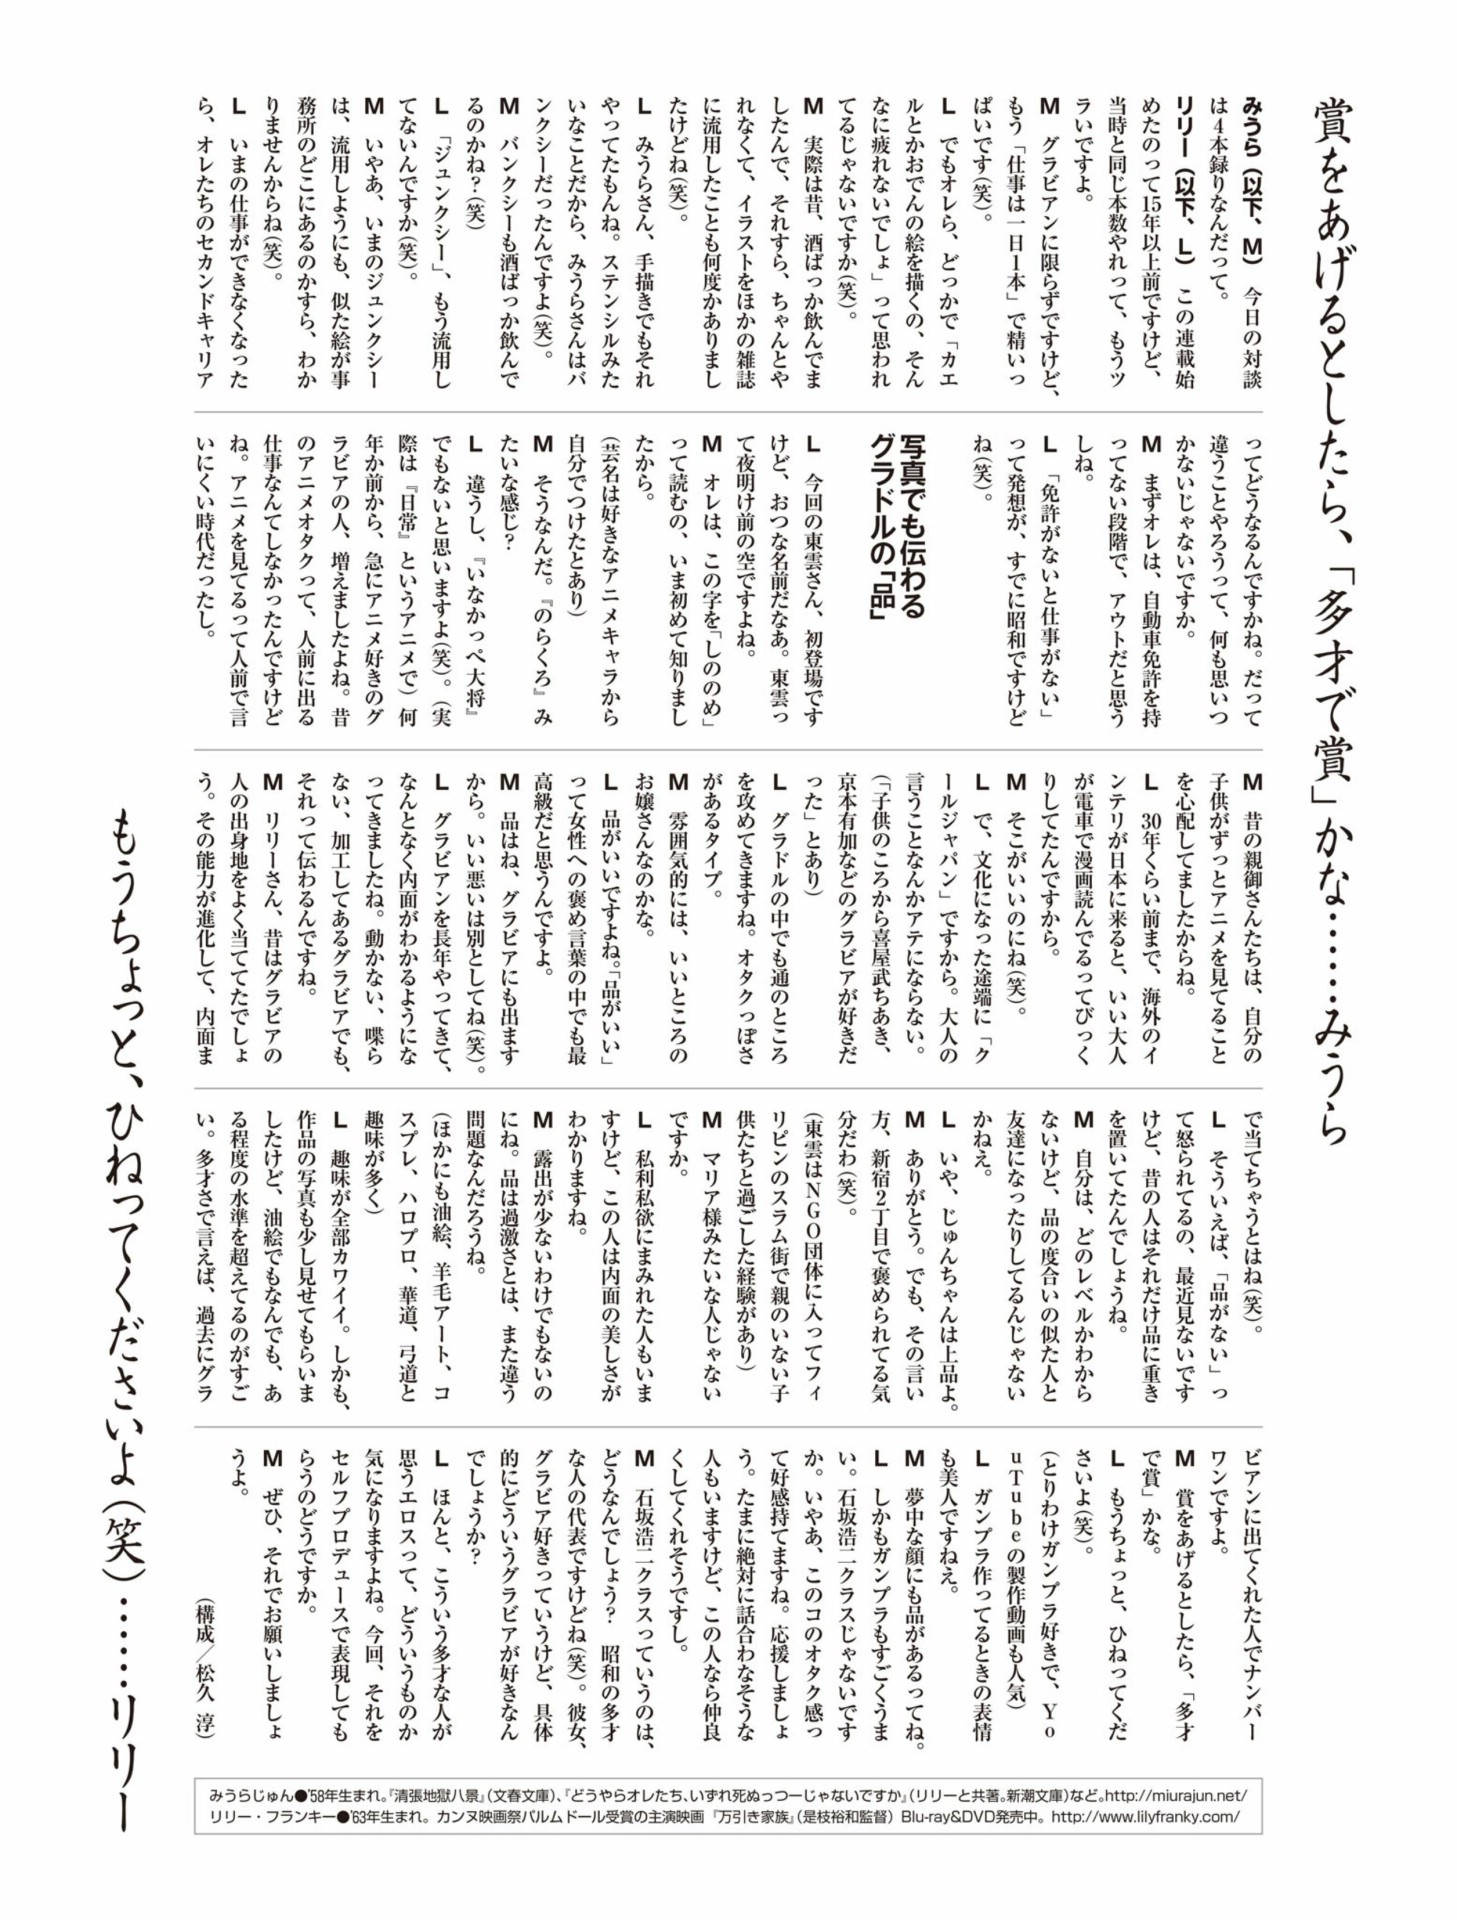 賞をあげるとしたら、「多才で賞」かな……みうら
みうら（以下、M） 今日の対談
は4本録りなんだって。
リリー（以下、L） この連載始
めたのって15年以上前ですけど、
当時と同じ本数やれって、もうツ
ラいですよ。
M グラビアンに限らずですけど、
もう「仕事は一日1本」で精いっ
ぱいです(笑)。
L でもオレら、どっかで「カエ
ルとかおでんの絵を描くの、そん
なに疲れないでしょ」って思われ
てるじゃないですか(笑)。
M 実際は昔、酒ばっか飲んでま
したんで、それすら、ちゃんとや
れなくて、イラストをほかの雑誌
に流用したことも何度かありまし
たけどね(笑)。
L みうらさん、手描きでもそれ
やってたもんね。ステンシルみた
いなことだから、みうらさんはバ
ンクシーだったんですよ(笑)。
M バンクシーも酒ばっか飲んで
るのかね?(笑)
L 「ジュンクシー」、もう流用し
てないんですか(笑)。
M いやあ、いまのジュンクシー
は、流用しようにも、似た絵が事
務所のどこにあるのかすら、わか
りませんからね(笑)。
L いまの仕事ができなくなった
ら、オレたちのセカンドキャリア
ってどうなるんですかね。だって
違うことやろうって、何も思いつ
かないじゃないですか。
M まずオレは、自動車免許を持
ってない段階で、アウトだと思う
しね。
L 「免許がないと仕事がない」
って発想が、すでに昭和ですけど
ね(笑)。
写真でも伝わる
グラドルの「品」
L 今回の東雲さん、初登場です
けど、おつな名前だなあ。東雲っ
て夜明け前の空ですよね。
M オレは、この字を「しののめ」
って読むの、いま初めて知りまし
たから。
(芸名は好きなアニメキャラから
自分でつけたとあり)
M そうなんだ。『のらくろ』み
たいな感じ?
L 違うし、『いなかっぺ大将』
でもないと思いますよ(笑)。(実
際は『日常』というアニメで) 何
年か前から、急にアニメ好きのグ
ラビアの人、増えましたよね。昔
のアニメオタクって、人前に出る
仕事なんてしなかったんですけど
ね。アニメを見てるって人前で言
いにくい時代だったし。
M 昔の親御さんたちは、自分の
子供がずっとアニメを見てること
を心配してましたからね。
L 30年くらい前まで、海外のイ
ンテリが日本に来ると、いい大人
が電車で漫画読んでるってびっく
りしてたんですから。
M そこがいいのにね(笑)。
L で、文化になった途端に「ク
ールジャパン」ですから。大人の
言うことなんかアテにならない。
(「子供のころから喜屋武ちあき、
京本有加などのグラビアが好きだ
った」とあり)
L グラドルの中でも通のところ
を攻めてきますね。オタクっぽさ
があるタイプ。
M 雰囲気的には、いいところの
お嬢さんなのかな。
L 品がいいですよね。「品がいい」
って女性への褒め言葉の中でも最
高級だと思うんですよ。
M 品はね、グラビアにも出ます
から。いい悪いは別としてね(笑)。
L グラビアンを長年やってきて、
なんとなく内面がわかるようにな
ってきましたね。動かない、喋ら
ない、加工してあるグラビアでも、
それって伝わるんですね。
M リリーさん、昔はグラビアの
人の出身地をよく当ててたでしょ
う。その能力が進化して、内面ま
で当てちゃうとはね(笑)。
L そういえば、「品がない」っ
て怒られてるの、最近見ないです
けど、昔の人はそれだけ品に重き
を置いてたんでしょうね。
M 自分は、どのレベルかわから
ないけど、品の度合いの似た人と
友達になったりしてるんじゃない
かねえ。
L いや、じゅんちゃんは上品よ。
M ありがとう。でも、その言い
方、新宿2丁目で褒められてる気
分だわ(笑)。
(東雲はNGO団体に入ってフィ
リピンのスラム街で親のいない子
供たちと過ごした経験があり)
M マリア様みたいな人じゃない
ですか。
L 私利私欲にまみれた人もいま
すけど、この人は内面の美しさが
わかりますね。
M 露出が少ないわけでもないの
にね。品は過激さとは、また違う
問題なんだろうね。
(ほかにも油絵、羊毛アート、コ
スプレ、ハロプロ、華道、弓道と
趣味が多く)
L 趣味が全部カワイイ。しかも、
作品の写真も少し見せてもらいま
したけど、油絵でもなんでも、あ
る程度の水準を超えてるのがすご
い。多才さで言えば、過去にグラ
ビアンに出てくれた人でナンバー
ワンですよ。
M 賞をあげるとしたら、「多才
で賞」かな。
L もうちょっと、ひねってくだ
さいよ(笑)。
(とりわけガンプラ好きで、Yo
uTubeの製作動画も人気)
L ガンプラ作ってるときの表情
も美人ですねえ。
M 夢中な顔にも品があるってね。
L しかもガンプラもすごくうま
い。石坂浩二クラスじゃないです
か。いやあ、このコのオタク感っ
て好感持てますね。応援しましょ
う。たまに絶対に話合わなそうな
人もいますけど、この人なら仲良
くしてくれそうですし。
M 石坂浩二クラスっていうのは、
どうなんでしょう? 昭和の多才
な人の代表ですけどね(笑)。彼女、
グラビア好きっていうけど、具体
的にどういうグラビアが好きなん
でしょうか?
L ほんと、こういう多才な人が
思うエロスって、どういうものか
気になりますよね。今回、それを
セルフプロデュースで表現しても
らうのどうですか。
M ぜひ、それでお願いしましょ
うよ。
(構成／松久 淳)
もうちょっと、ひねってくださいよ(笑)……リリー
みうらじゅん●'58年生まれ。『清張地獄八景』(文春文庫)、『どうやらオレたち、いずれ死ぬっつーじゃないですか』(リリーと共著。新潮文庫)など。http://miurajun.net/
リリー・フランキー●'63年生まれ。カンヌ映画祭パルムドール受賞の主演映画『万引き家族』(是枝裕和監督) Blu-ray&DVD発売中。http://www.lilyfranky.com/